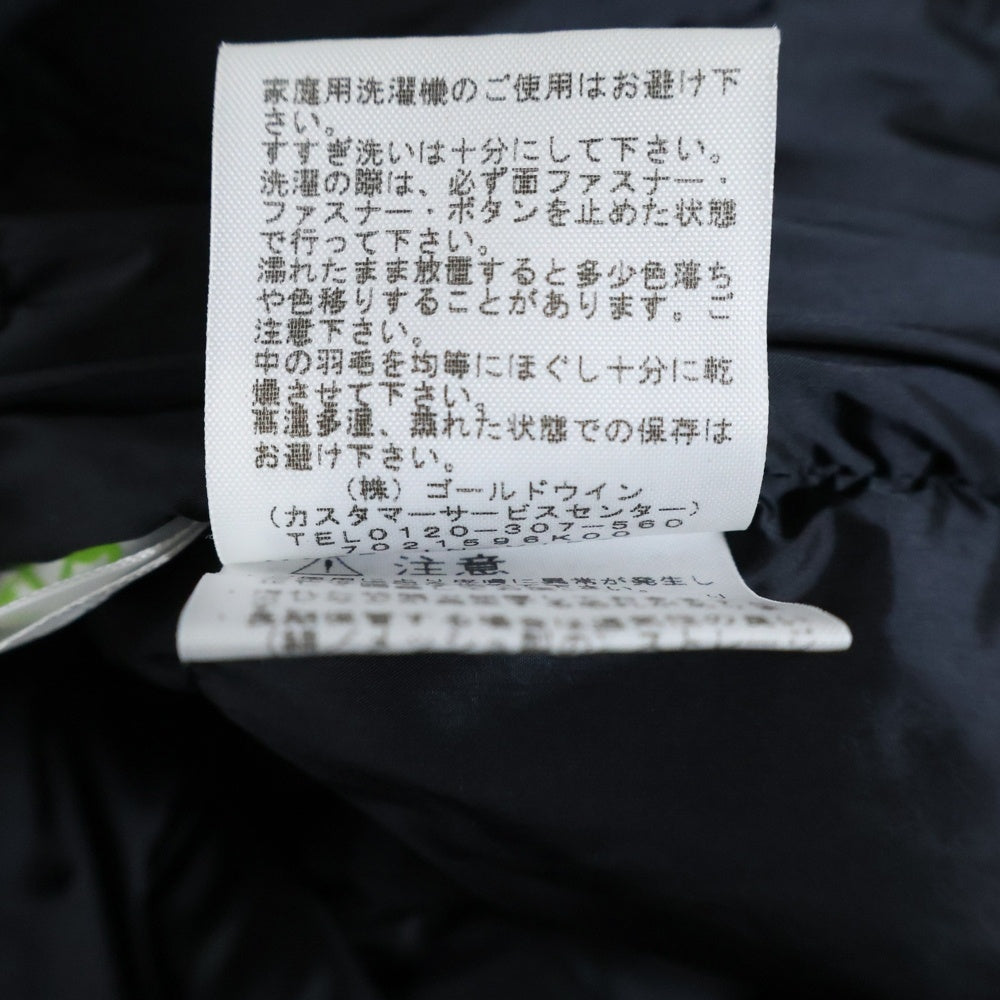 家庭用洗濯機のご使用はお避け下
さい。
すすぎ洗いは十分にして下さい。
洗濯の際は、必ず面ファスナー・
ファスナー・ボタンを止めた状態
で行って下さい。
濡れたまま放置すると多少色落ち
や色移りすることがあります。ご
注意下さい。
中の羽毛を均等にほぐし十分に乾
燥させて下さい。
高温多湿、濡れた状態での保存は
お避け下さい。
(株)ゴールドウイン
(カスタマーサービスセンター)
TEL0120-307-560
7021596K00
注意
に異常が発生し